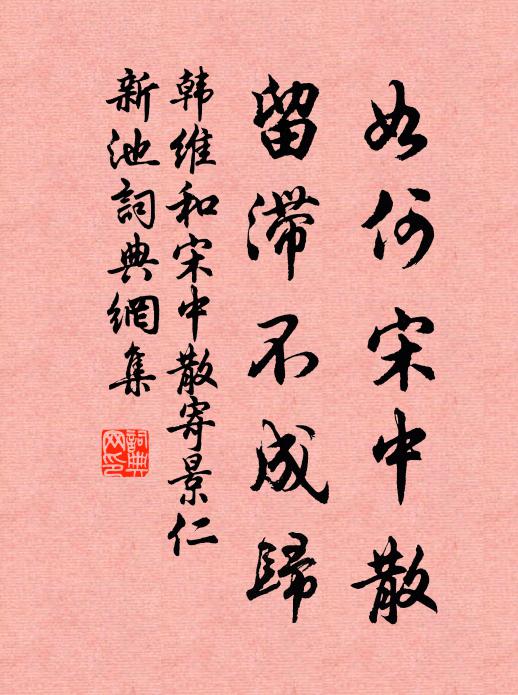 如何宋中散
留滞不成歸
韩維和宋中散寄景仁
新池詞典網集
詞典網印